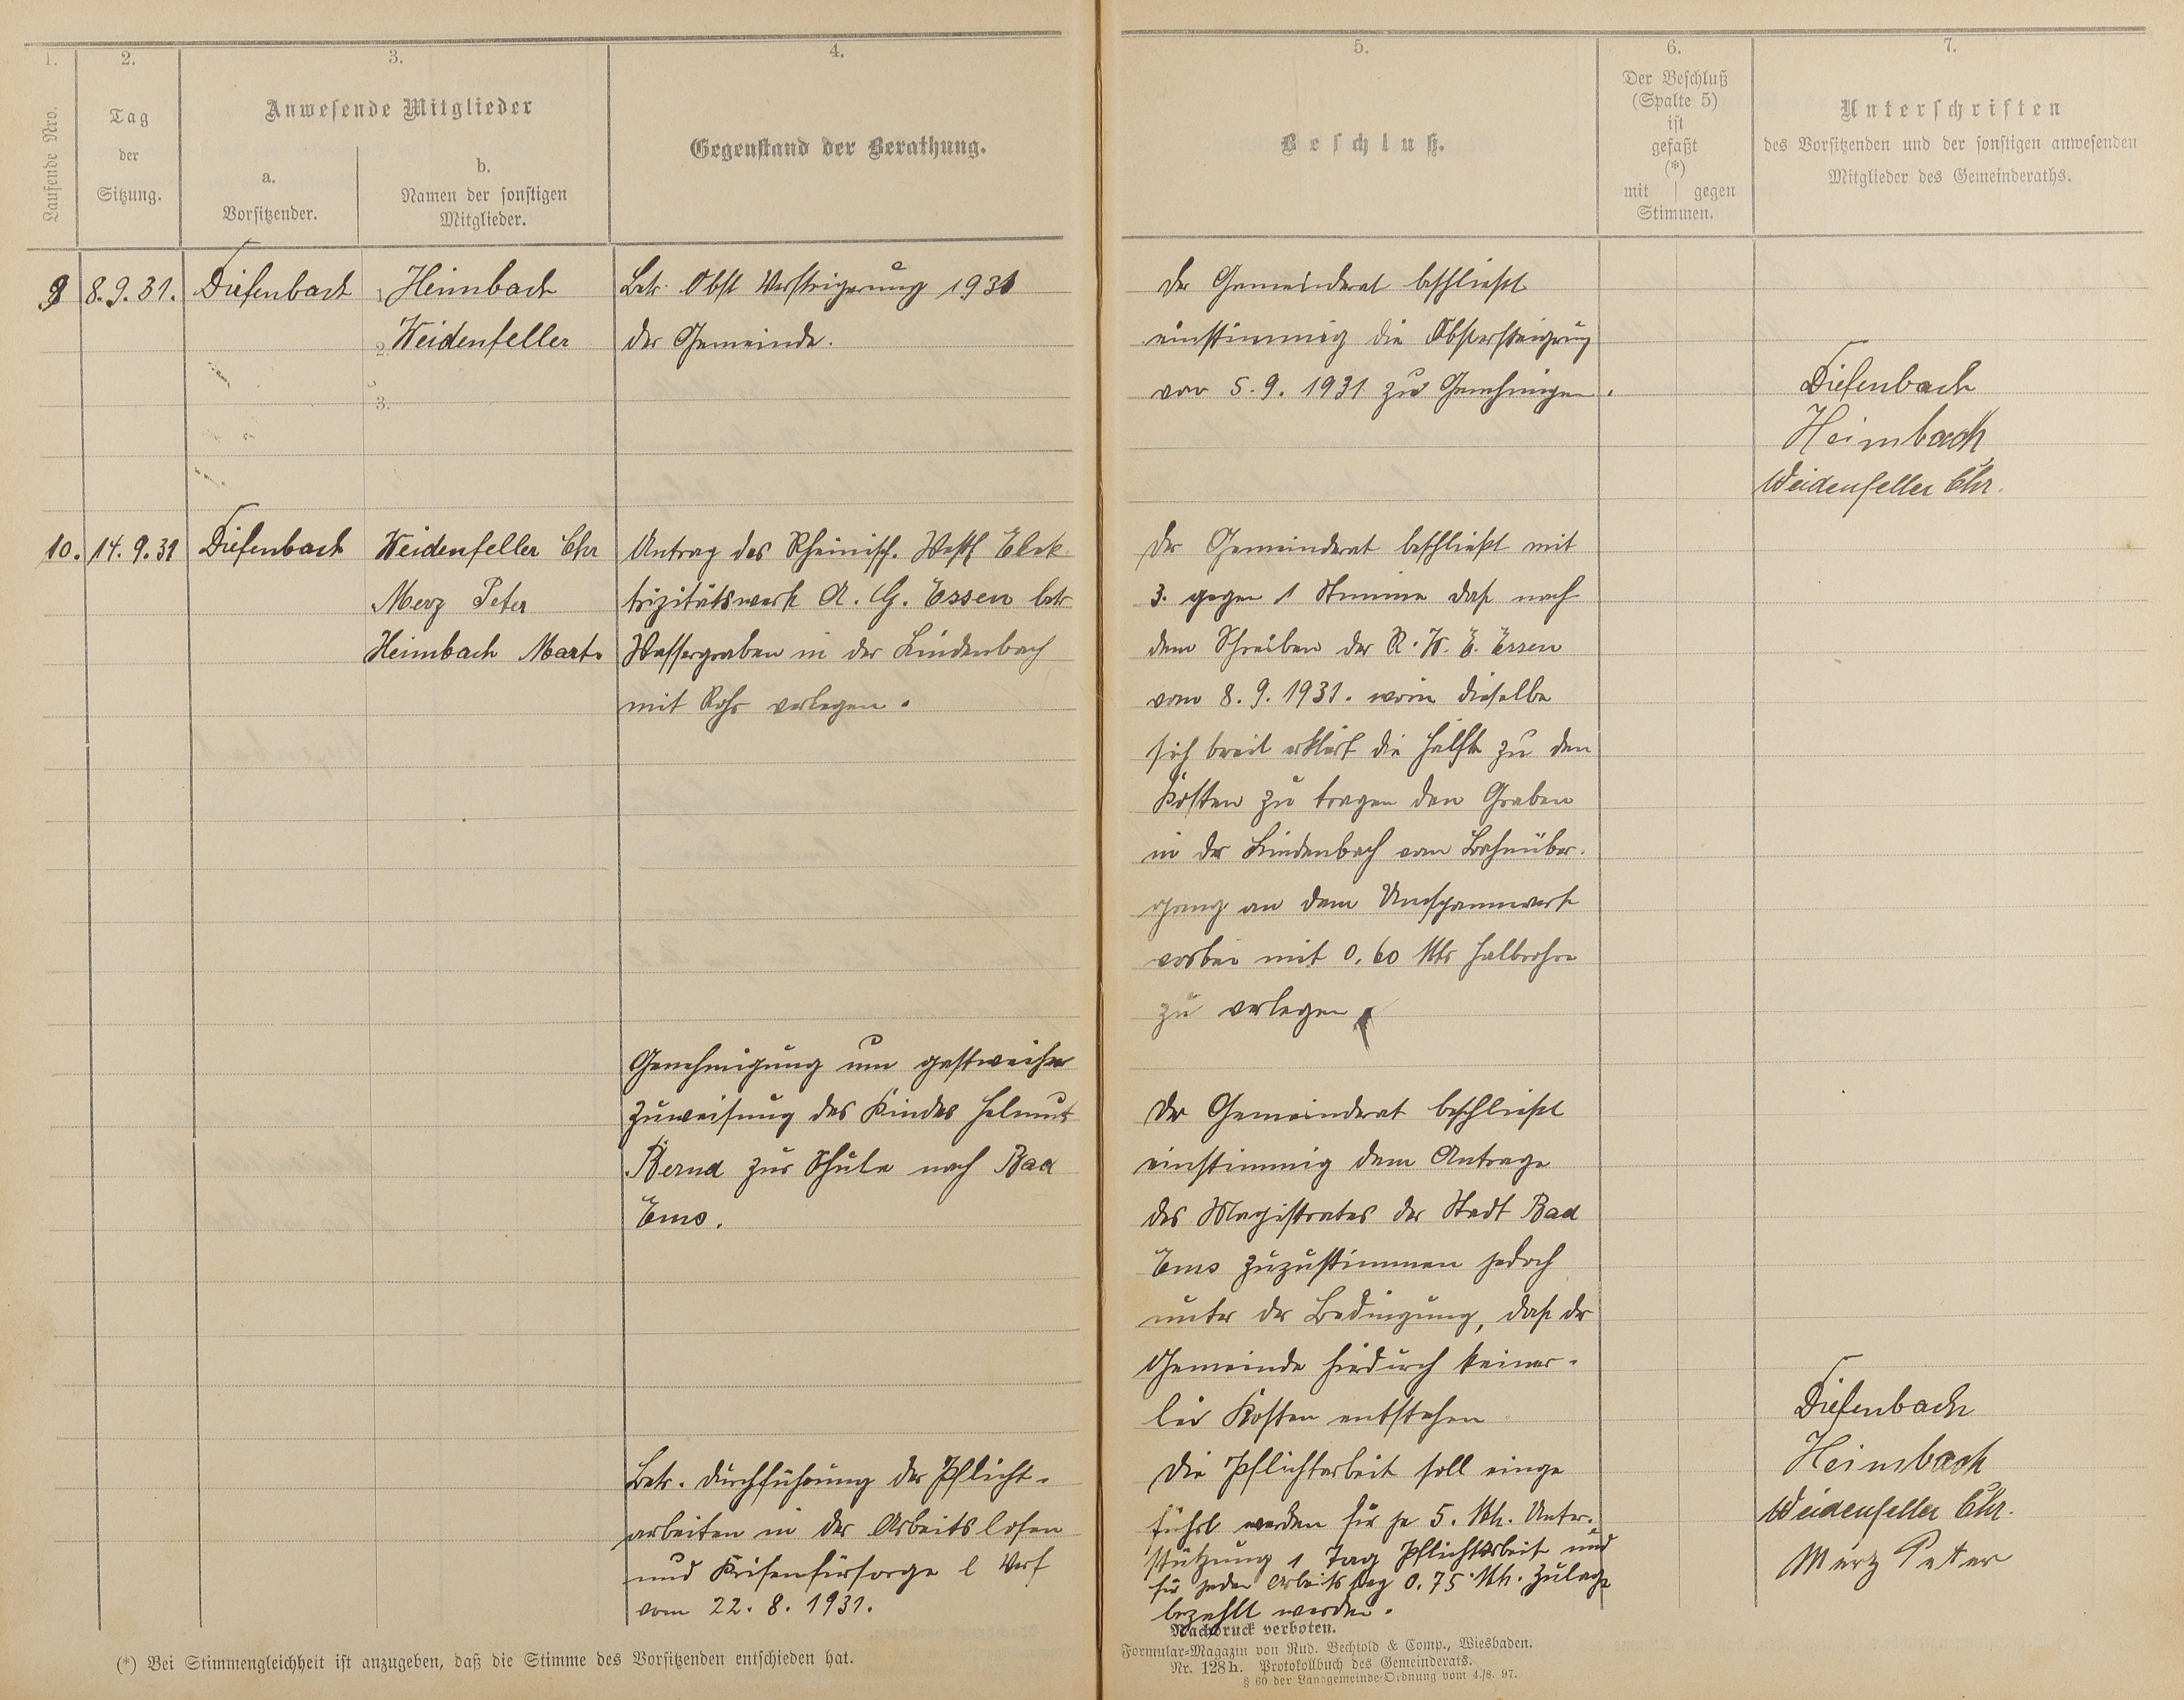 1.
2.
3.
4.
Laufende Nro.
Tag
der
Sitzung.
Anwesende Mitglieder
a.
Vorsitzender.
b.
Namen der sonstigen
Mitglieder.
Gegenstand der Berathung.
9
8.9.31.
Diefenbach
1. Heimbach
2. Weidenfeller
3.
Betr. Obst Versteigerung 1931
der Gemeinde.
10.
14.9.31
Diefenbach
Weidenfeller Chr
Merz Peter
Heimbach Mart.
Antrag des Rheinisch. Westf Elek
trizitätswerk A. G. Essen betr
Wassergraben in der Lindenbach
mit Rohr verlegen.
Genehmigung um gastweise
Zuweisung des Kindes Helmut
Bernd zur Schule nach Bad
Ems.
Betr. Durchführung der Pflicht-
arbeiten in der Arbeitslosen
und Krisenfürsorge l Verf
vom 22. 8. 1931.
(*) Bei Stimmengleichheit ist anzugeben, daß die Stimme des Vorsitzenden entschieden hat.
5.
6.
7.
Beschluß.
Der Beschluß
(Spalte 5)
ist
gefaßt
(*)
mit | gegen
Stimmen.
Unterschriften
des Vorsitzenden und der sonstigen anwesenden
Mitglieder des Gemeinderaths.
Der Gemeinderat beschließt
einstimmig die Obstersteigrung
vor 5.9. 1931 zu Genehmigen.
Diefenbach
Heimbach
Weidenfeller Chr.
Der Gemeinderat beschließt mit
3. gegen 1 Stimme daß nach
dem Schreiben der R. W. E. Essen
vom 8.9.1931. worin dieselbe
sich bereit erklärt die Hälfte zu den
Kosten zu tragen den Graben
in der Lindenbach vom Bahnüber-
gang an dem Umspannwerk
vorbei mit 0,60 Mtr Halbrohre
zu verlegen
Der Gemeinderat beschließt
einstimmig dem Antrage
des Magistrates der Stadt Bad
Ems zuzustimmen jedoch
unter der Bedingung, daß der
Gemeinde hierdurch keiner-
lei Kosten entstehen
Die Pflichtarbeit soll einge
führt werden für je 5. Mk. Unter-
stützung 1 Tag Pflichtarbeit und
für jeden Arbeitstag 0.75 Mk. Zulage
bezahlt werden.
Diefenbach
Heimbach
Weidenfeller Chr.
Merz Peter
Nachdruck verboten.
Formular-Magazin von Rud. Bechtold & Comp., Wiesbaden.
Nr. 128h. Protokollbuch des Gemeinderats.
§ 60 der Landgemeinde-Ordnung vom 4./8. 97.